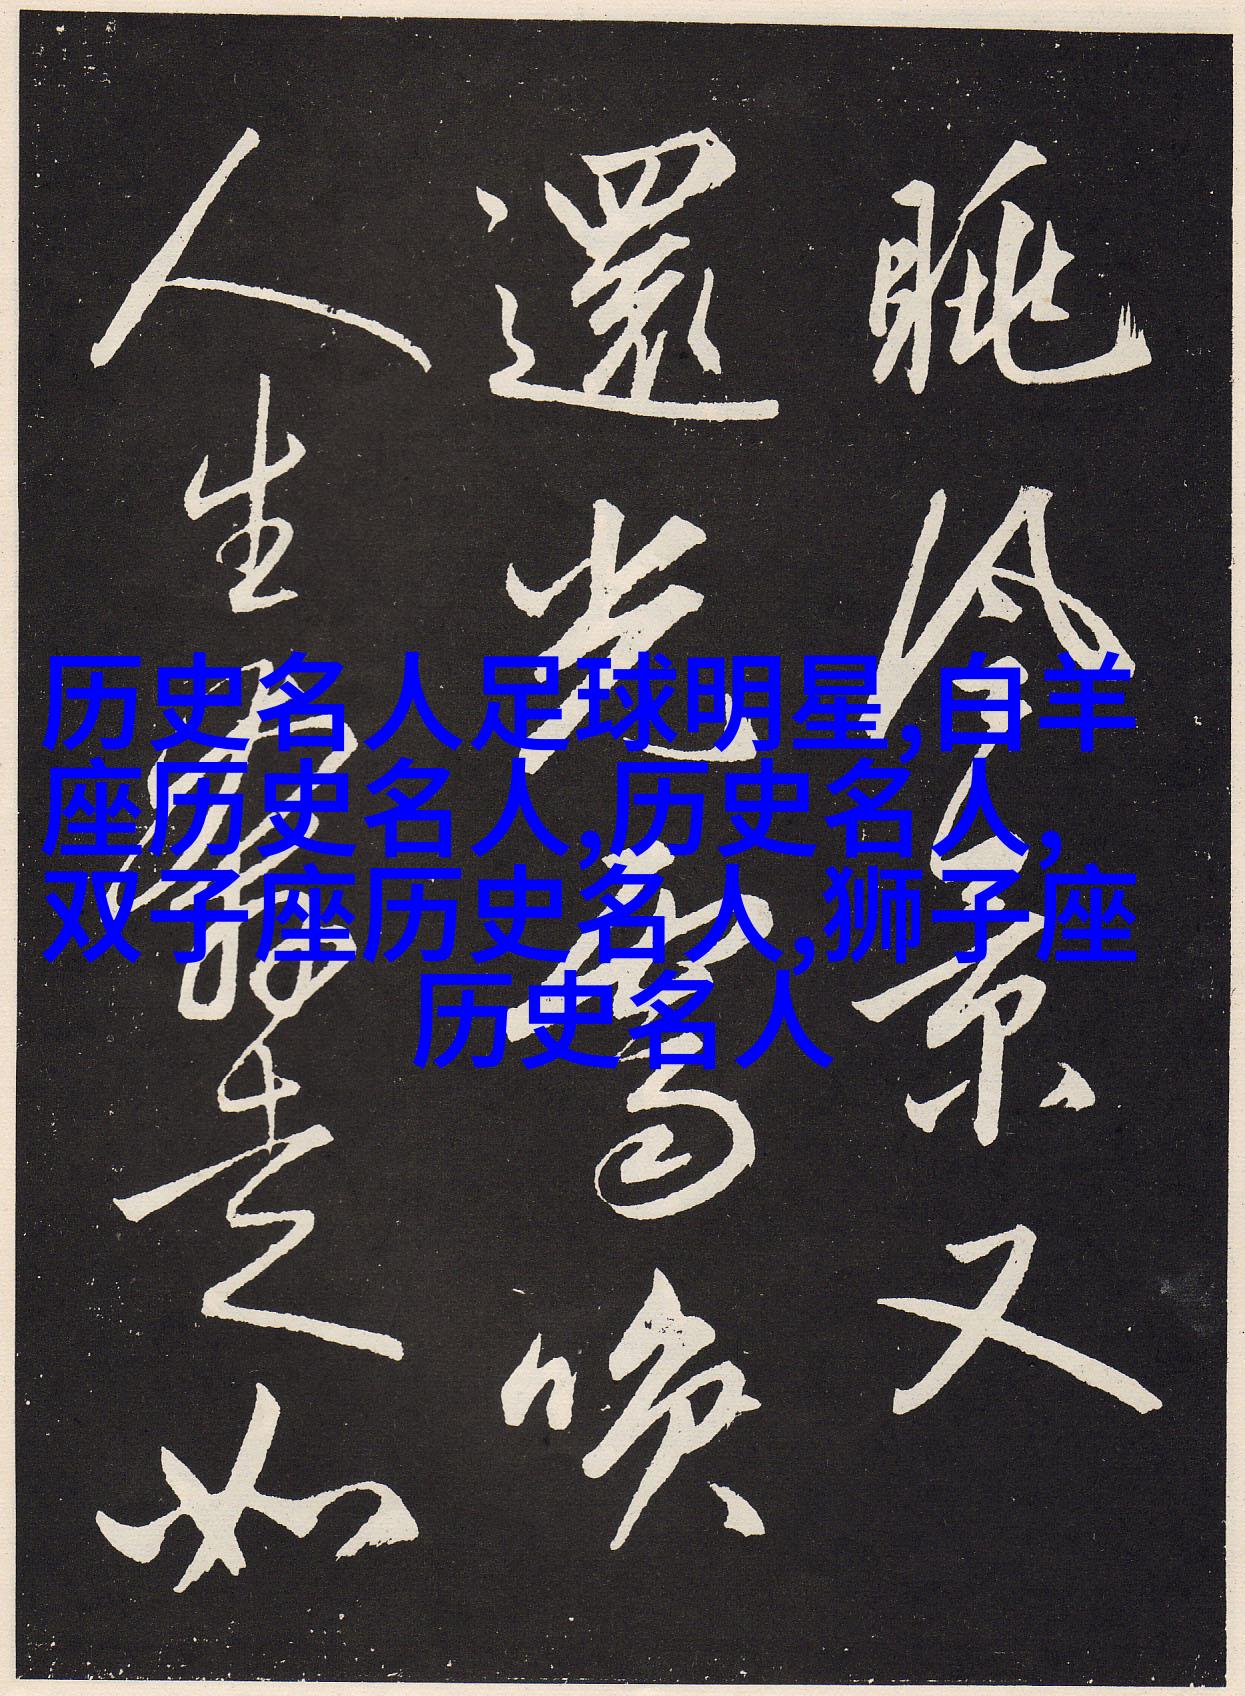 历史名人足球明星,白羊
座历史名人,历史名人,
双子座历史名人,狮子座
历史名人
眺冷景又
還光驚喚
人生走如